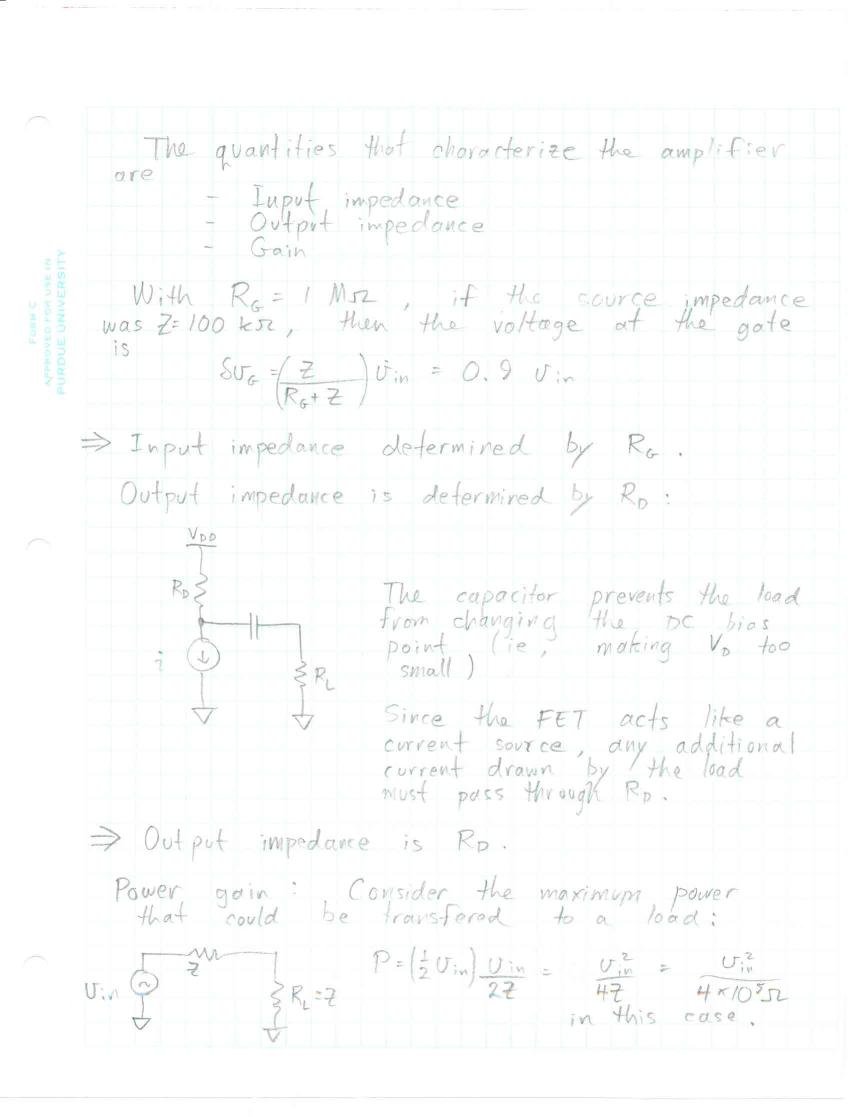 The quantities that characterize the amplifier
are
- Input impedance
- Output impedance
- Gain
FORM C
APPROVED FOR USE IN
PURDUE UNIVERSITY
With R_G = 1 MΩ, if the source impedance
was Z=100 kΩ, then the voltage at the gate
is
δv_G = (Z / (R_G + Z)) v_in = 0.9 v_in
⇒ Input impedance determined by R_G.
Output impedance is determined by R_D:
V_DD
R_D
i
R_L
The capacitor prevents the load
from changing the DC bias
point (ie, making V_D too
small)
Since the FET acts like a
current source, any additional
current drawn by the load
must pass through R_D.
⇒ Output impedance is R_D.
Power gain: Consider the maximum power
that could be transfered to a load:
v_in
Z
R_L=Z
P = (½ v_in) v_in / 2Z = v_in² / 4Z = v_in² / 4×10⁵Ω
in this case.